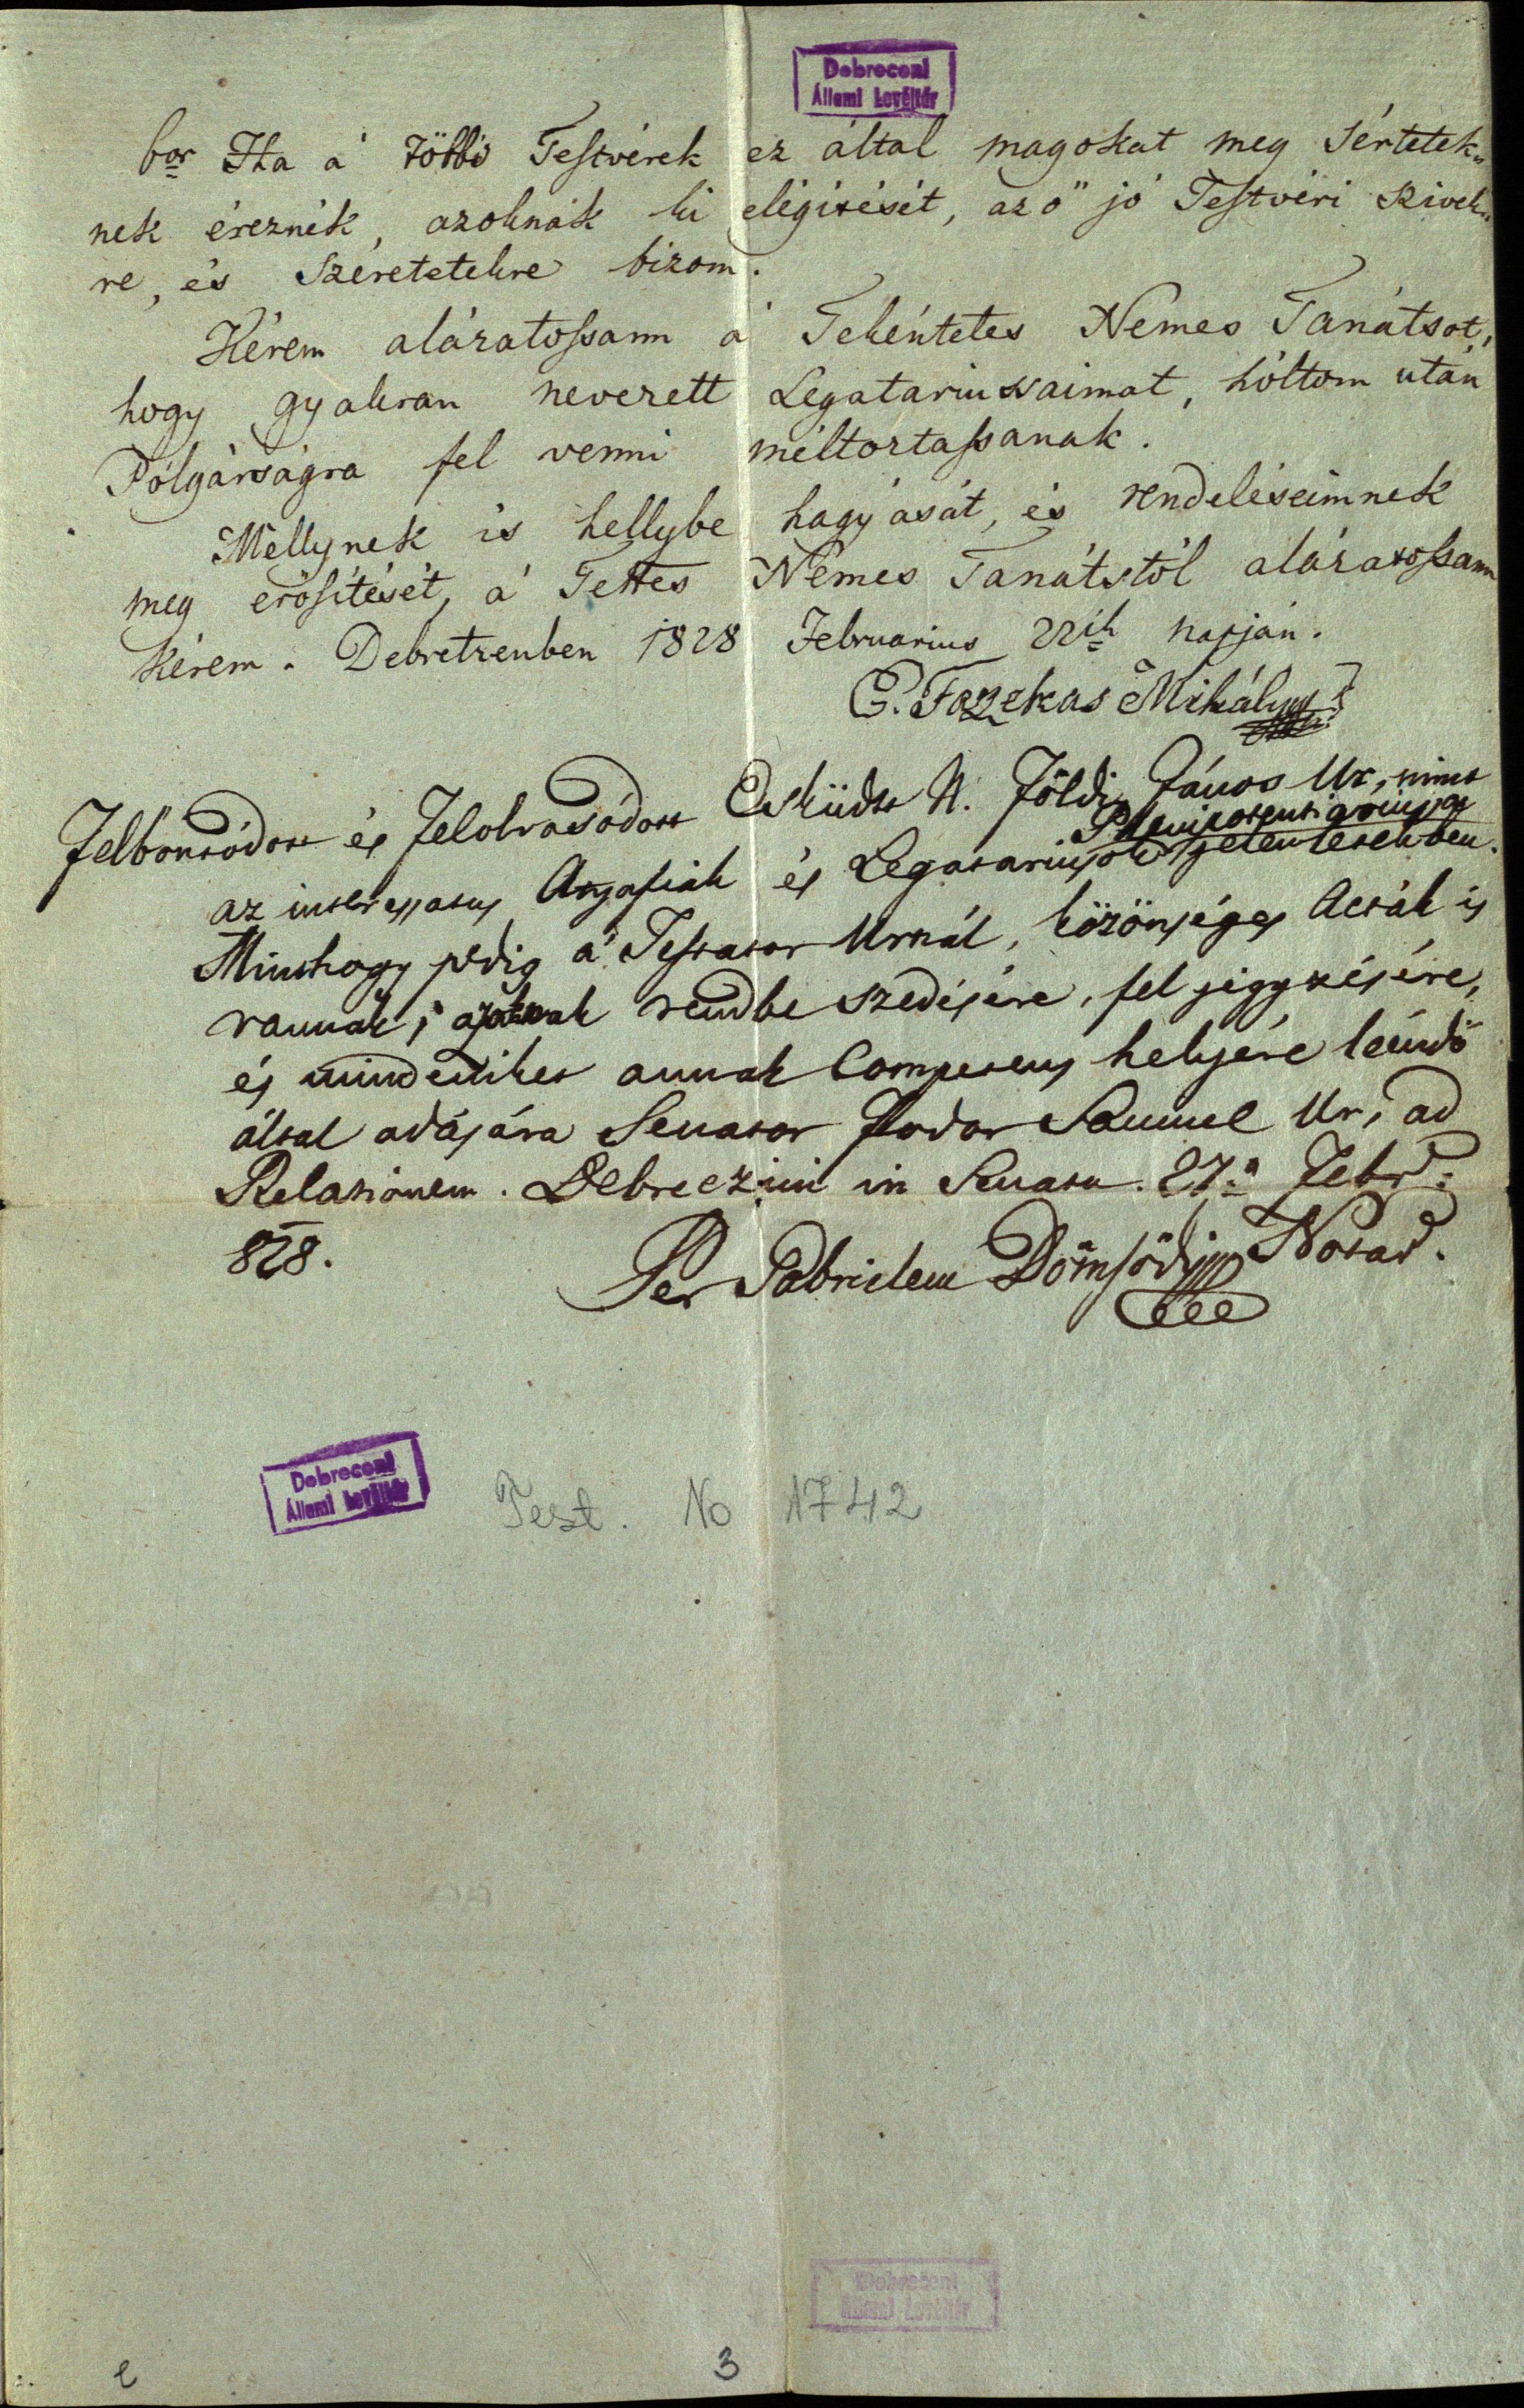 Debreceni
Állami Levéltár
6or Ha a' többi Testvérek ez által magokat meg sértetek„
nek éreznék, azoknak ki elégitését, az ő jó Testvéri szivek„
re, és szeretetekre bizom.
Kérem alázatossann a' Tekéntetes Nemes Tanátsot,
hogy gyakran nevezett Legatariussaimat, hóltom után
Pólgárságra fel venni méltoztassanak.
Mellynek is hellybe hagyását, és rendeléseimnek
meg erősitését, a' Tettes Nemes Tanátstól alázatossann
kérem. Debretzenben 1828 Februarius 22ik napján.
G. Fazekas Mihály
Felbontódott és Felolvasódott Esküdtt N. Földi János Ur, mint
Plenipotentiariussa
az interessatus Atyafiak és Legatariusok jelenlétekben.
Minthogy pedig a' Testator Urnál, közönséges Acták is
vannak; azoknak rendbe szedésére, fel jegyzésére,
és mindeniket annak Competens helyére leéndő
által adására Senator Fodor Samuel Ur, ad
Relationem. Debreczini in Senatu. 27a Febr:
828.
Per Gabrielem Dömsödi Notar.
Debreceni
Állami Levéltár
Test. No 1742
Debreceni
Állami Levéltár
2 3